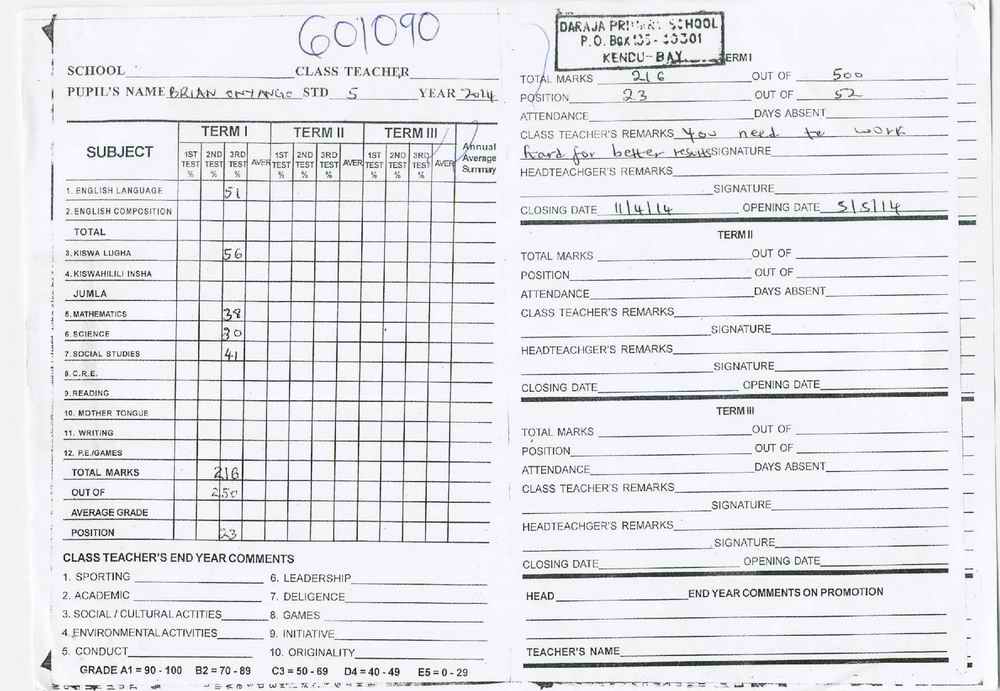 601090
SCHOOL CLASS TEACHER
PUPIL'S NAME BRIAN ONYANGO STD 5 YEAR 2014
SUBJECT TERM I TERM II TERM III Annual Average Summary
1ST TEST % 2ND TEST % 3RD TEST % AVER 1ST TEST % 2ND TEST % 3RD TEST % AVER 1ST TEST % 2ND TEST % 3RD TEST % AVER
1. ENGLISH LANGUAGE 51
2. ENGLISH COMPOSITION
TOTAL
3. KISWA LUGHA 56
4. KISWAHILILI INSHA
JUMLA
5. MATHEMATICS 38
6. SCIENCE 30
7. SOCIAL STUDIES 41
8. C.R.E.
9. READING
10. MOTHER TONGUE
11. WRITING
12. P.E./GAMES
TOTAL MARKS 216
OUT OF 250
AVERAGE GRADE
POSITION 23
CLASS TEACHER'S END YEAR COMMENTS
1. SPORTING 6. LEADERSHIP
2. ACADEMIC 7. DELIGENCE
3. SOCIAL / CULTURAL ACTITIES 8. GAMES
4. ENVIRONMENTAL ACTIVITIES 9. INITIATIVE
5. CONDUCT 10. ORIGINALITY
GRADE A1 = 90 - 100 B2 = 70 - 89 C3 = 50 - 69 D4 = 40 - 49 E5 = 0 - 29
DARAJA PRIMARY SCHOOL
P.O. Box
KENDU-BAY
TERM I
TOTAL MARKS 216 OUT OF 500
POSITION 23 OUT OF 52
ATTENDANCE DAYS ABSENT
CLASS TEACHER'S REMARKS You need to work
hard for better results SIGNATURE
HEADTEACHGER'S REMARKS
SIGNATURE
CLOSING DATE 11/4/14 OPENING DATE 5/5/14
TERM II
TOTAL MARKS OUT OF
POSITION OUT OF
ATTENDANCE DAYS ABSENT
CLASS TEACHER'S REMARKS
SIGNATURE
HEADTEACHGER'S REMARKS
SIGNATURE
CLOSING DATE OPENING DATE
TERM III
TOTAL MARKS OUT OF
POSITION OUT OF
ATTENDANCE DAYS ABSENT
CLASS TEACHER'S REMARKS
SIGNATURE
HEADTEACHGER'S REMARKS
SIGNATURE
CLOSING DATE OPENING DATE
HEAD END YEAR COMMENTS ON PROMOTION
TEACHER'S NAME